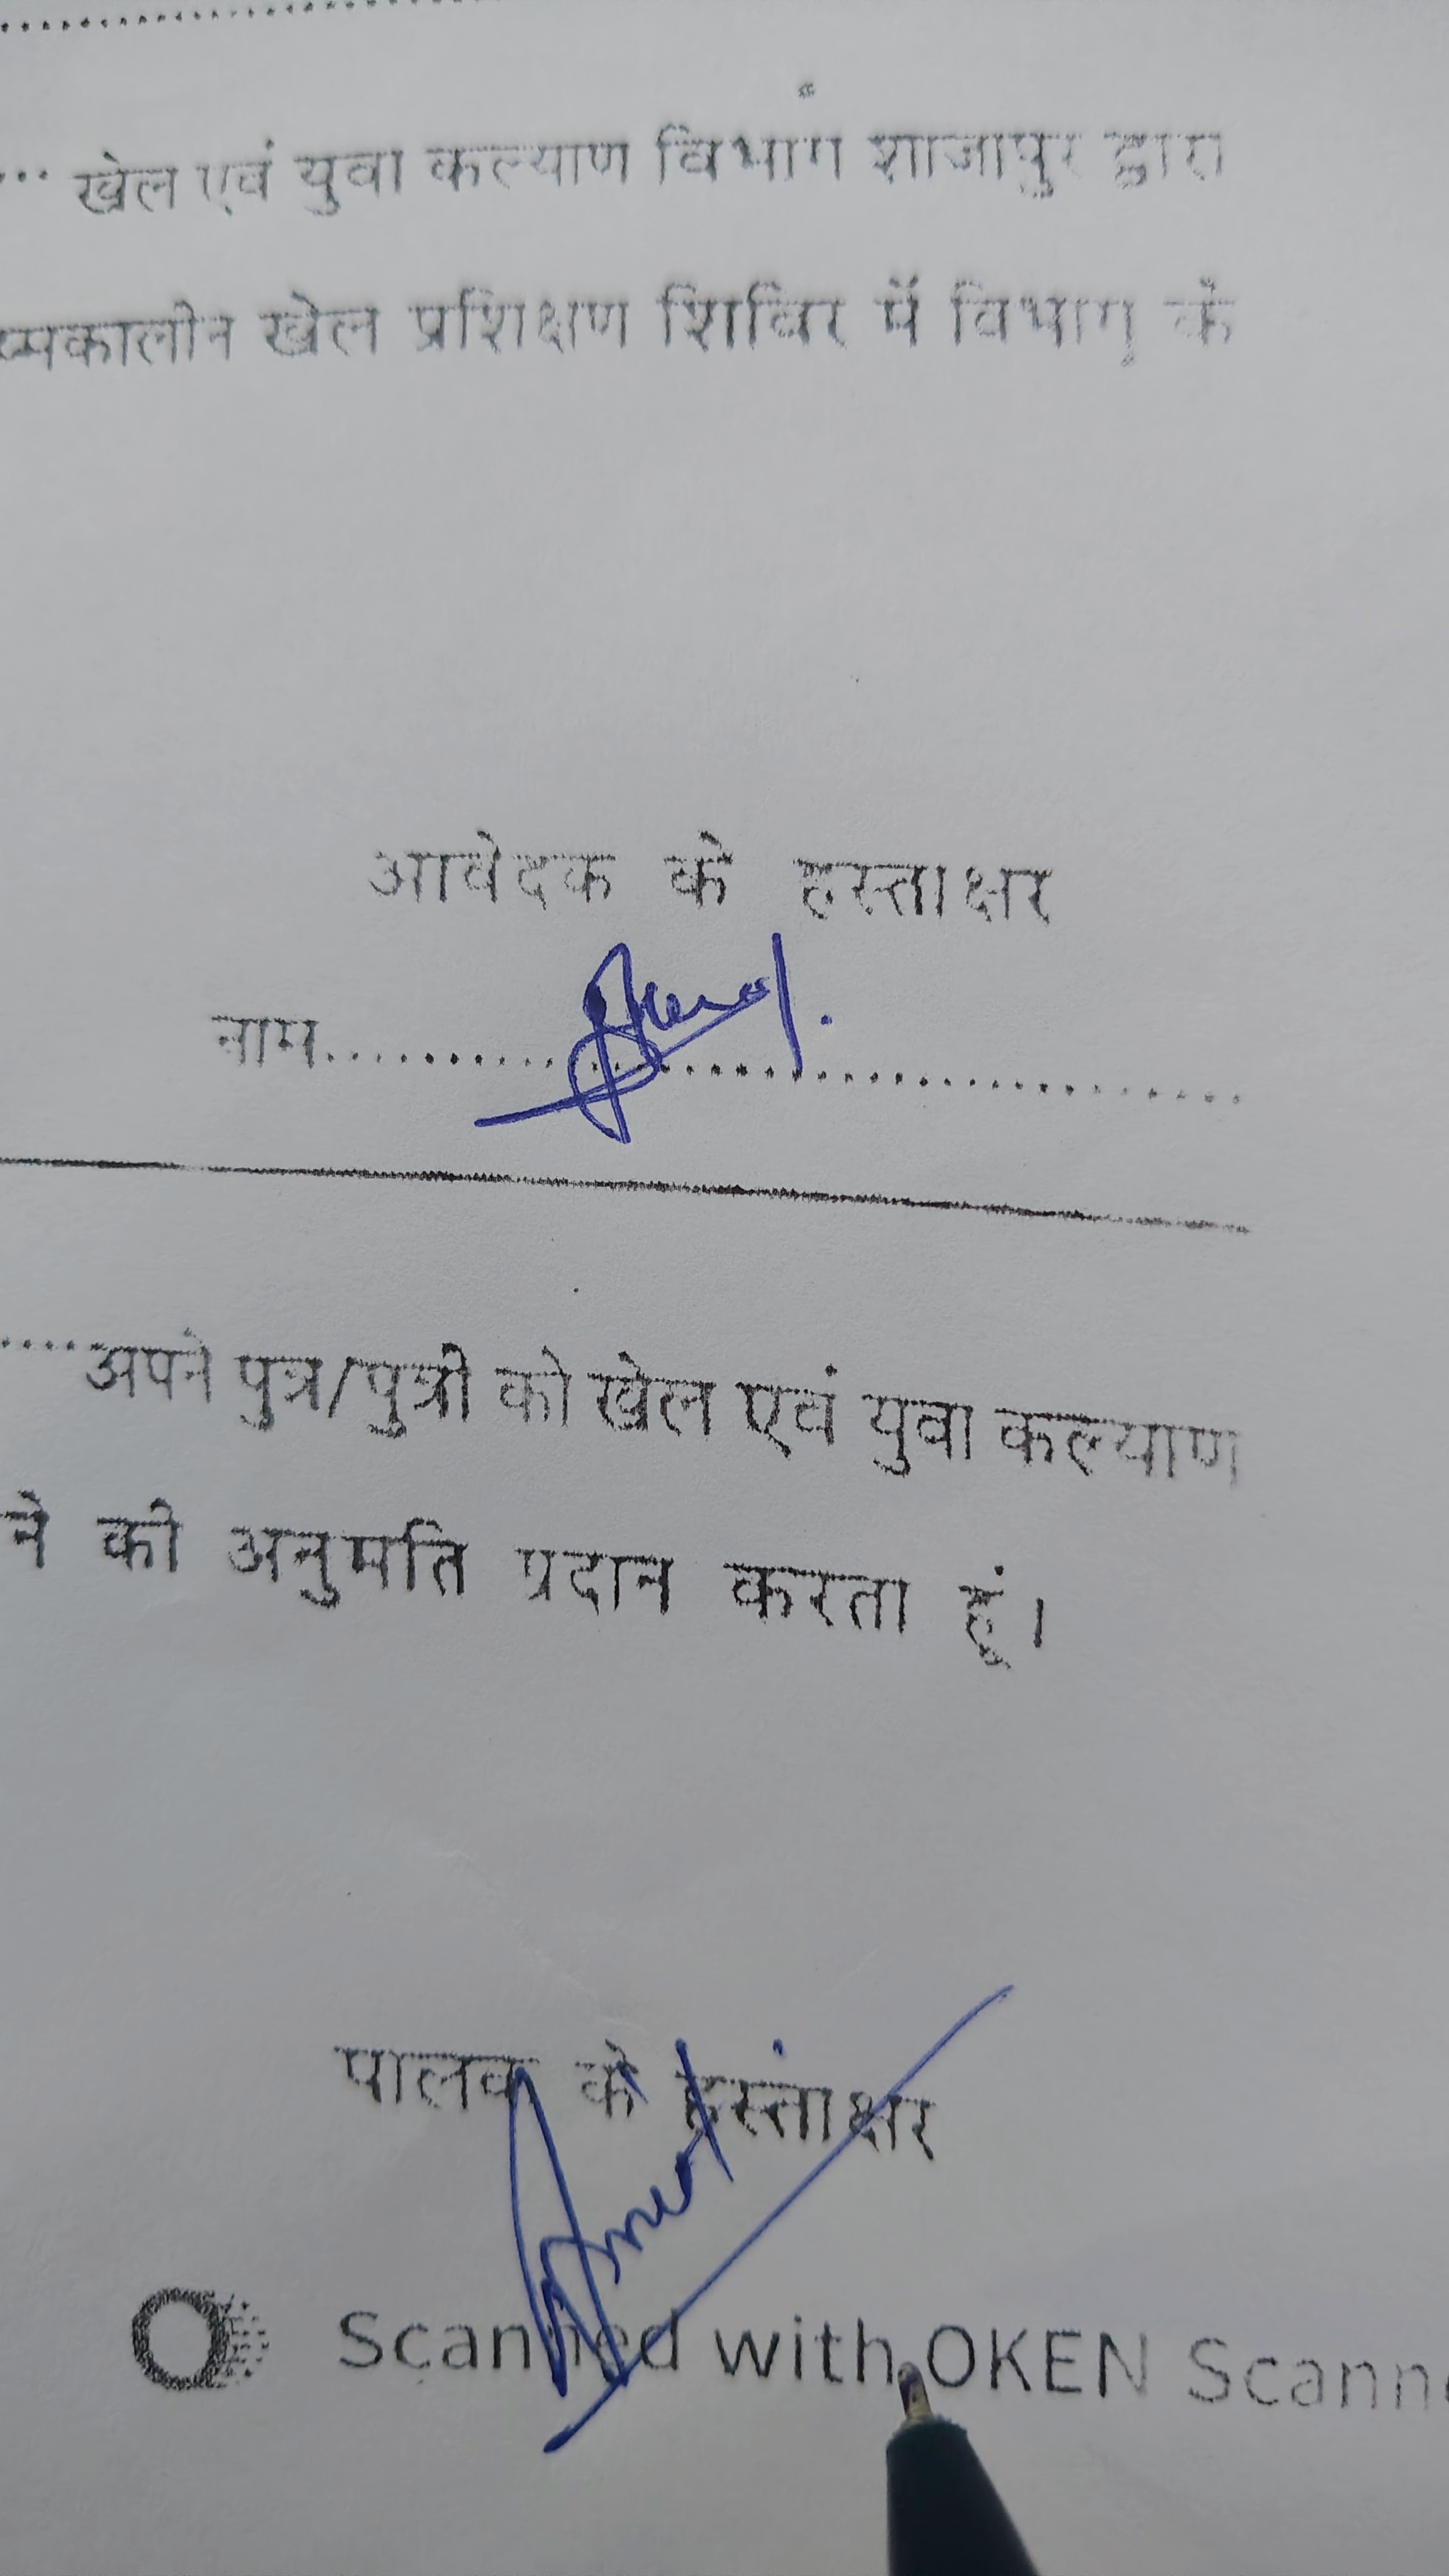 खेल एवं युवा कल्याण विभाग शाजापुर द्वारा
खेल प्रशिक्षण शिविर में विभाग के
आवेदक के हस्ताक्षर
नाम
अपने पुत्र/पुत्री को खेल एवं युवा कल्याण
ने की अनुमति प्रदान करता हूं।
पालक के हस्ताक्षर
Scanned with OKEN